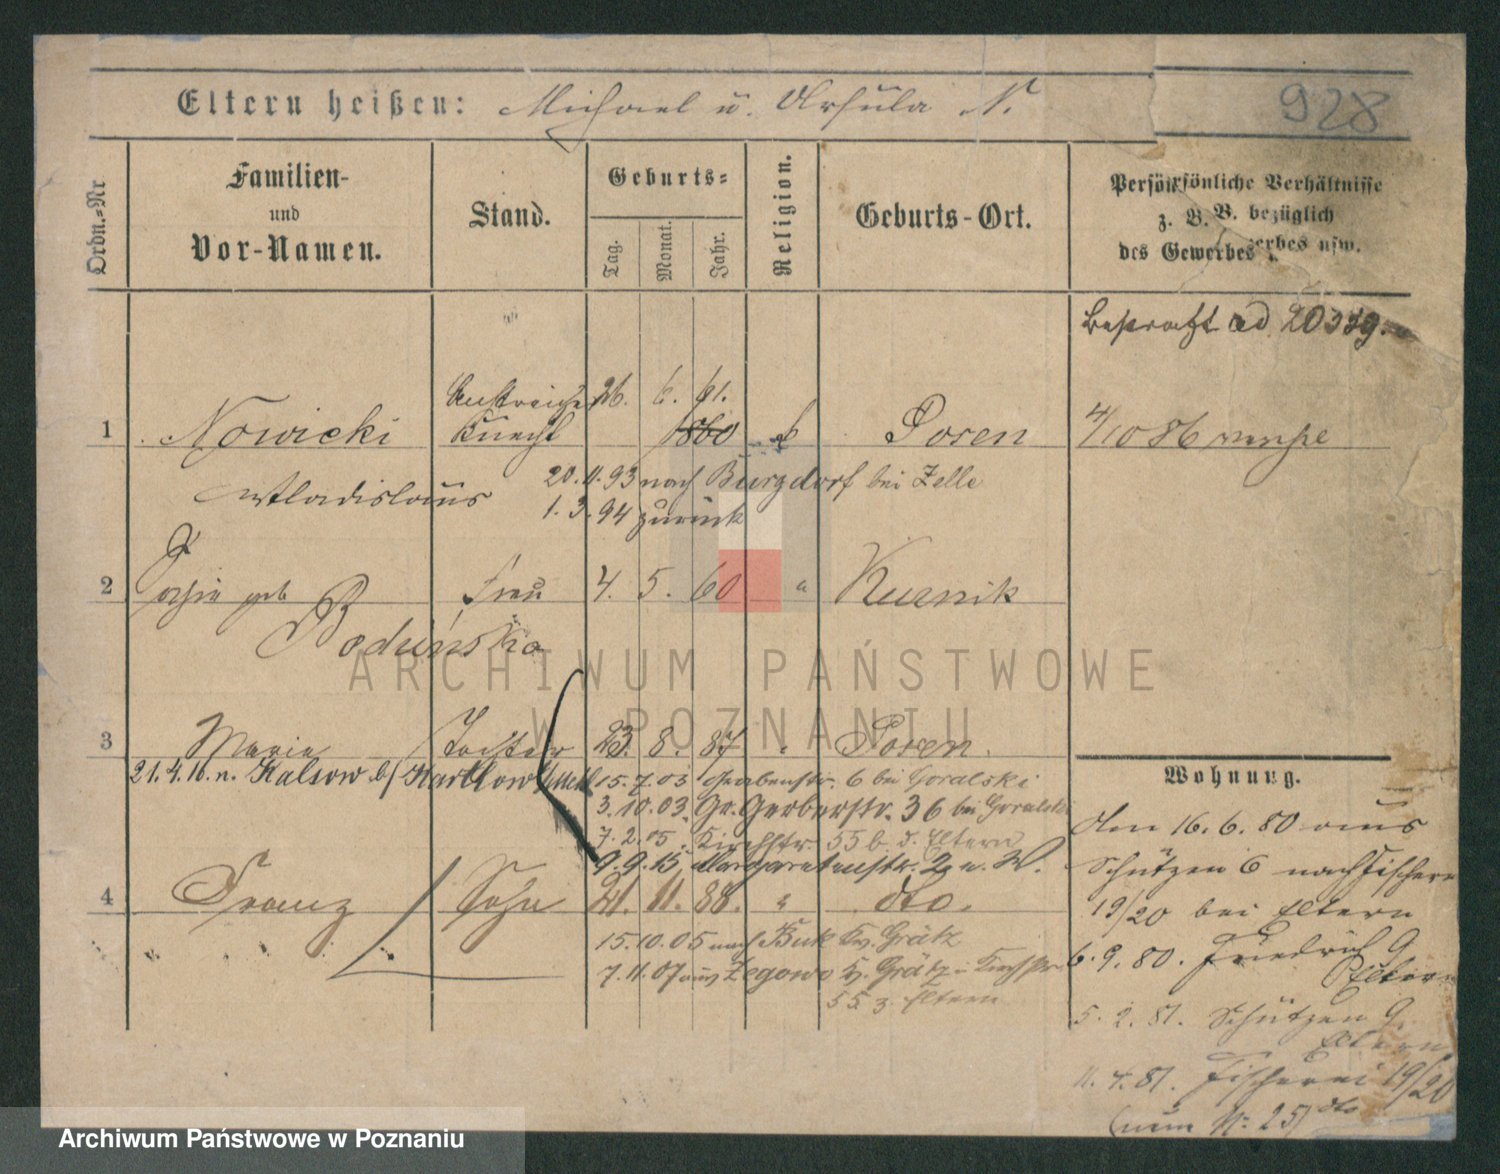 Eltern heißen: Michael u. Ursula N.
928
Ordn.=Nr
Familien-
und
Vor-Namen.
Stand.
Geburts=
Tag.
Monat.
Jahr.
Religion.
Geburts-Ort.
Persönliche Verhältnisse
z. B. bezüglich
des Gewerbes usw.
Bestraft ad
26. 6. 61.
1 Nowicki Knecht 1860 Posen 4/10 86
Wladislaus 20.11.93 nach Burgdorf bei Zelle
1.3.94 zurück
2 geb Frau 4. 5. 60 " Kurnik
Boduńska
3 Marie Tochter 23. 8. 87 " Posen.
21.4.16. n. Kalsow b/
15.7.03 Gerberstr. 6 bei Goralski
3.10.03. Gr. Gerberstr. 36 bei Goralski
7.2.05. Kirchstr. 55 b. d. Eltern
9.9.15 Margaretenstr. 2 n. W.
4 Franz Sohn 21. 11. 88. " dto.
15.10.05 nach Buk Kr. Grätz
7.11.07 aus Zegowo Kr. Grätz Kirchstr.
55 z. Eltern
Wohnung.
den 16.6.80 aus
Schützen 6 nach Fischerei
19/20 bei Eltern
6.9.80. Friedrich 9
Eltern
5.2.81. Schützen 9.
Eltern
11.4.81. Fischerei 19/20
(nun N: 25) dto
ARCHIWUM PAŃSTWOWE
W POZNANIU
Archiwum Państwowe w Poznaniu